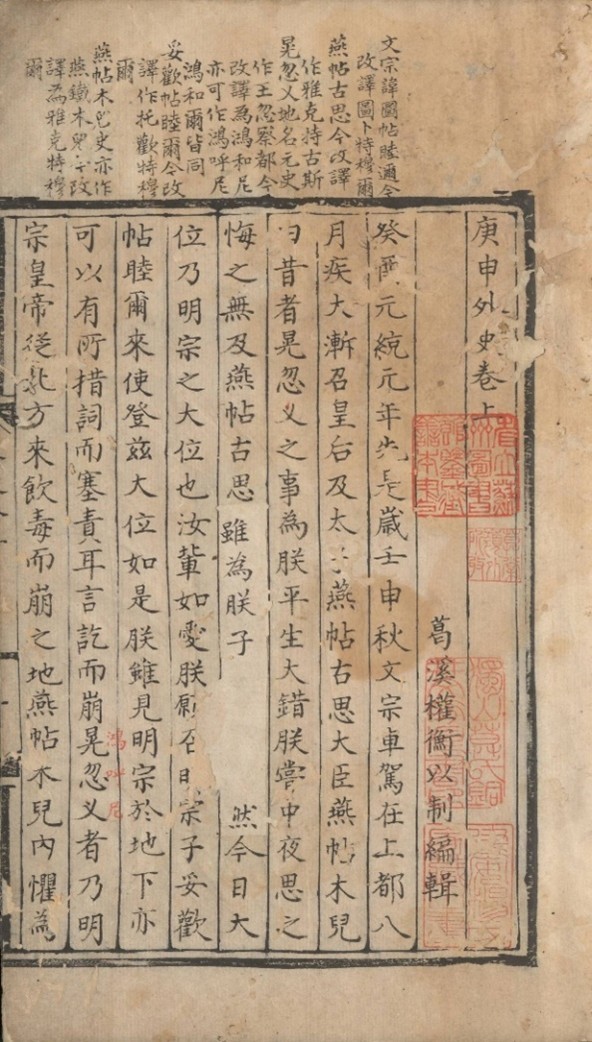 文宗諱圖帖睦邇今
改譯圖卜特穆爾
燕帖古思今改譯
作雅克特古斯
晃忽义地名元史
作王忽察都今
改譯為鴻和尼
亦可作鴻呼尼
鴻和爾皆同
妥歡帖睦爾今改
譯作托歡特穆
爾
燕帖木兒史亦作
燕鐵木兒今改
譯為雅克特穆
爾
庚申外史卷上
葛溪權衡以制編輯
癸酉元統元年先是歲壬申秋文宗車駕在上都八
月疾大漸召皇后及太子燕帖古思大臣燕帖木兒
曰昔者晃忽义之事為朕平生大錯朕嘗中夜思之
悔之無及燕帖古思雖為朕子然今日大
位乃明宗之大位也汝輩如愛朕願召明宗子妥歡
帖睦爾來使登茲大位如是朕雖見明宗於地下亦
可以有所措詞而塞責耳言訖而崩晃忽义者乃明
鴻呼尼
宗皇帝從北方來飲毒而崩之地燕帖木兒內懼為